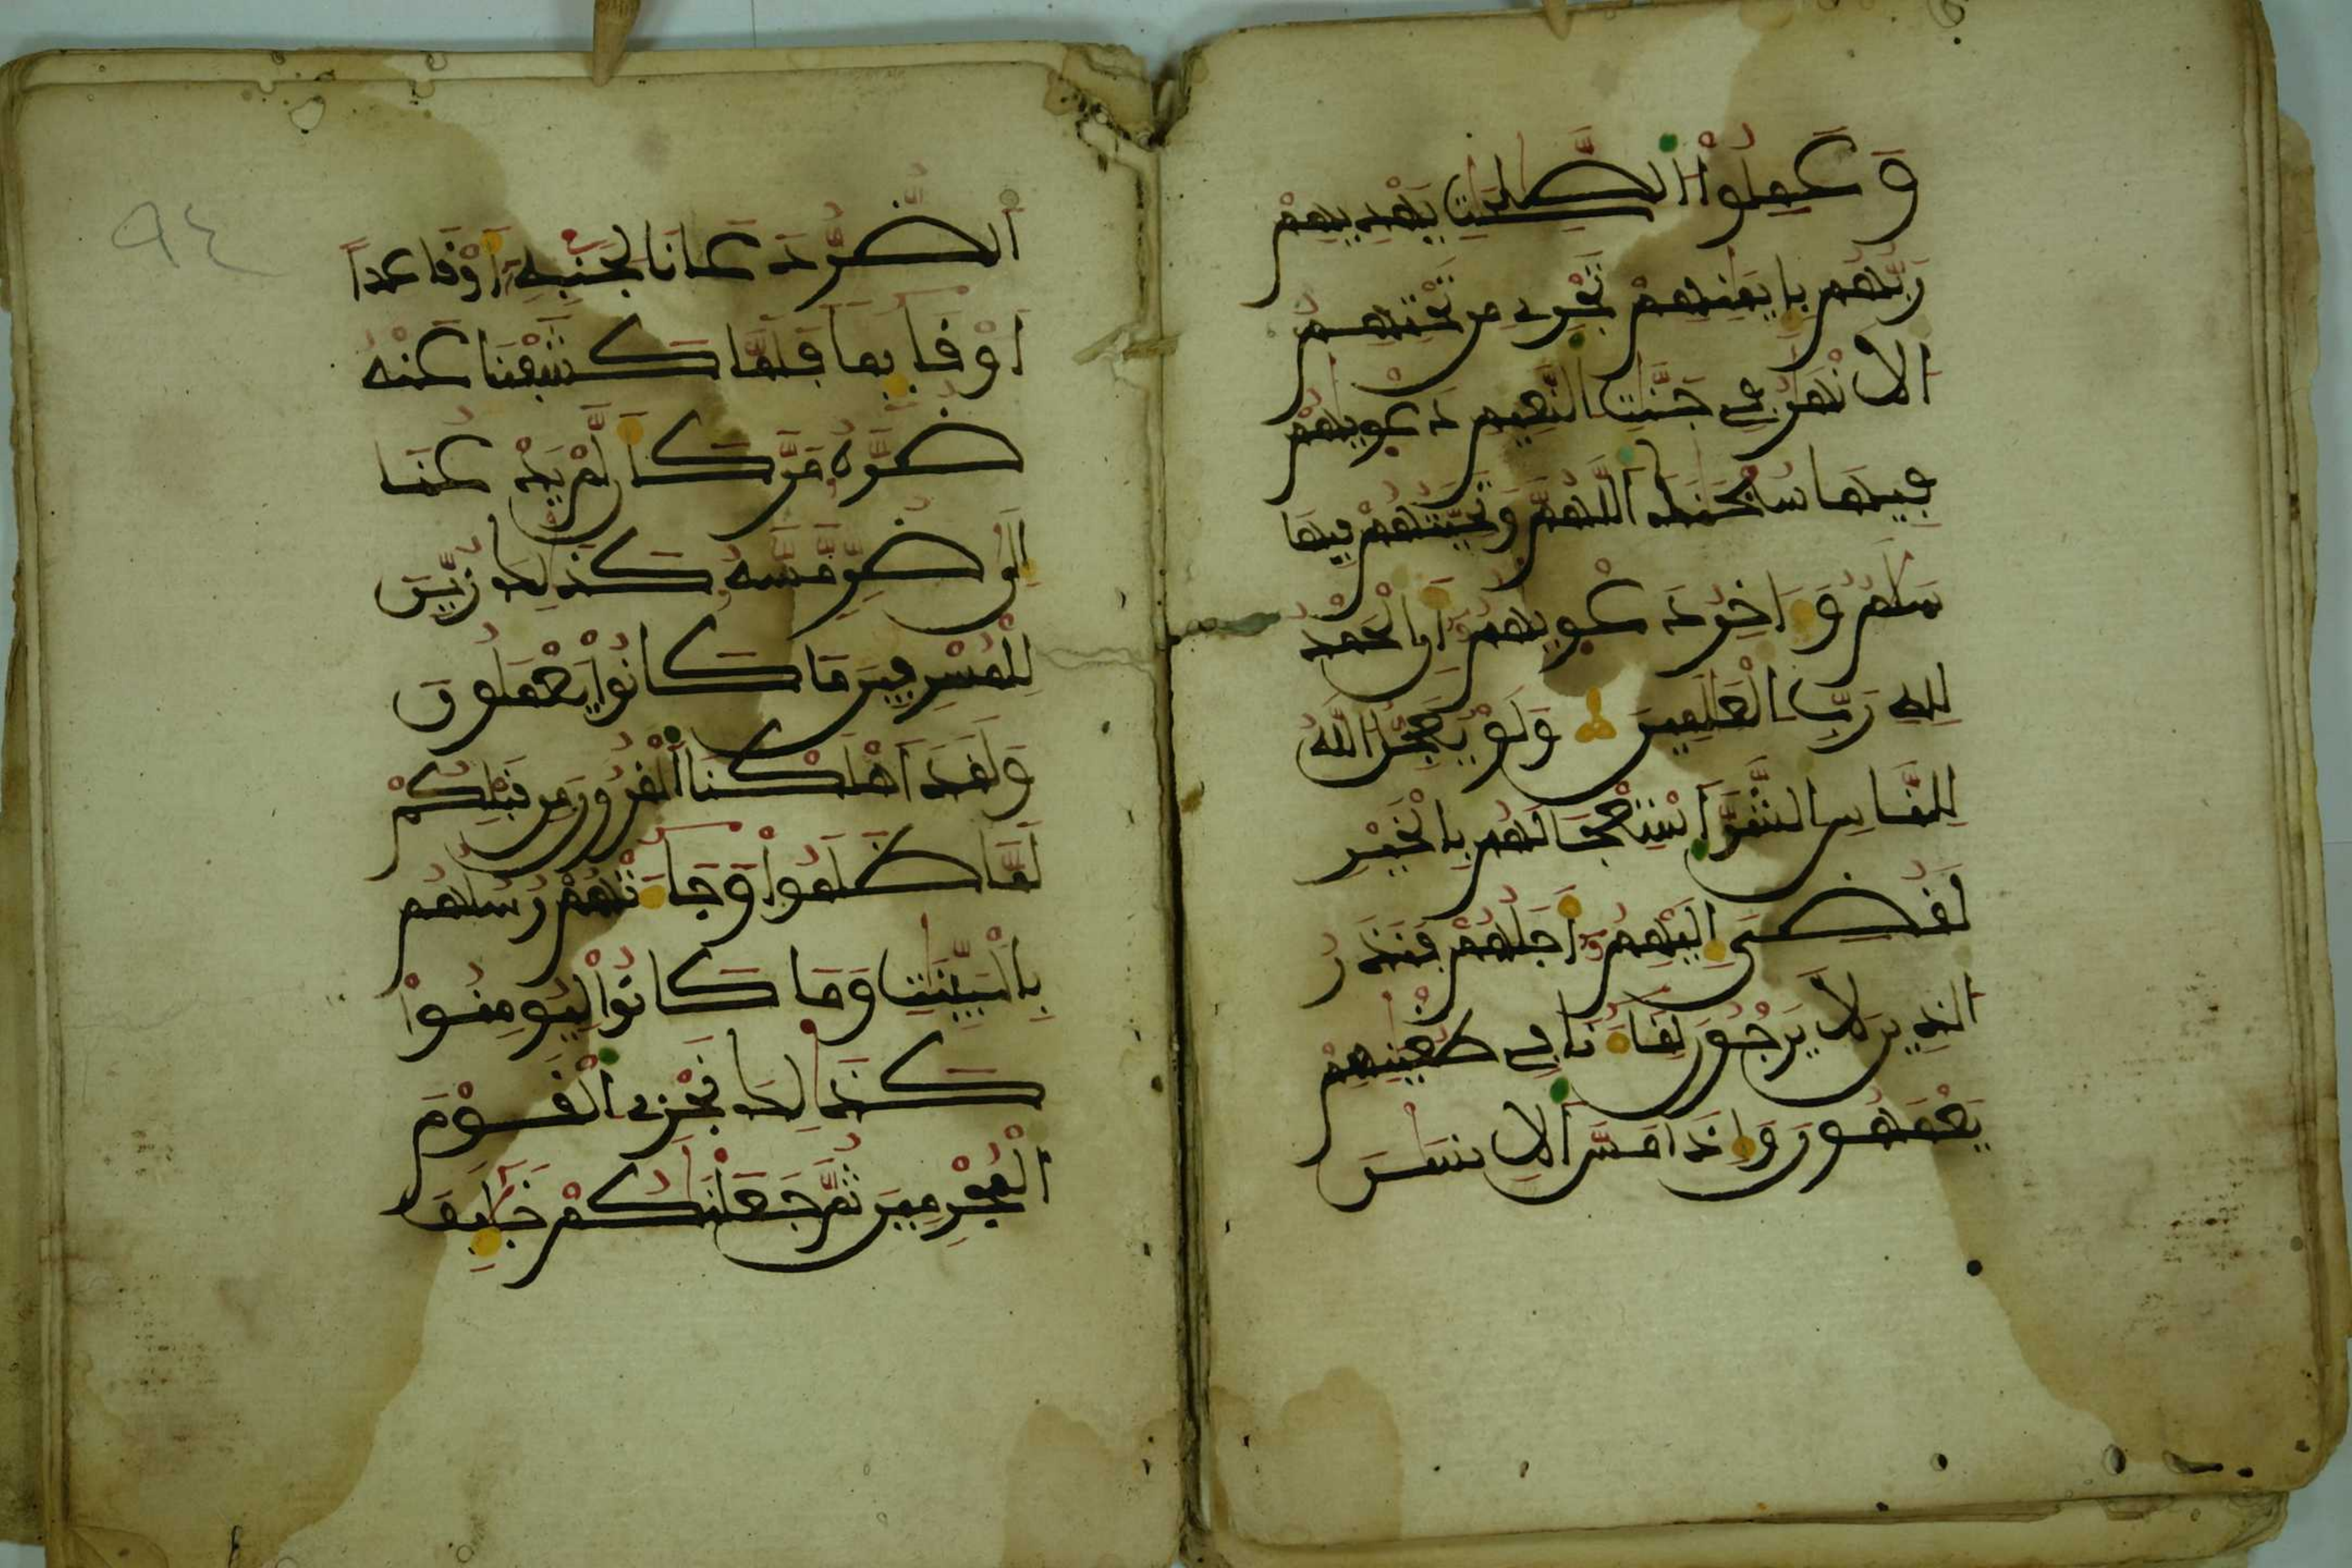 وَعَمِلُواْ الصَّٰلِحَٰتِ يَهْدِيهِمْ
رَبُّهُم بِإِيمَٰنِهِمْ تَجْرِي مِن تَحْتِهِمُ
الَانْهَٰرُ فِي جَنَّٰتِ النَّعِيمِ دَعْوِيٰهُمْ
فِيهَا سُبْحَٰنَكَ اللَّهُمَّ وَتَحِيَّتُهُمْ فِيهَا
سَلَٰمٌ وَءَاخِرُ دَعْوِيٰهُمُ أَنِ الْحَمْدُ
لِلهِ رَبِّ الْعَٰلَمِينَ وَلَوْ يُعَجِّلُ اللَّهُ
لِلنَّاسِ الشَّرَّ اَسْتِعْجَالَهُم بِالْخَيْرِ
لَقُضِيَ إِلَيْهِمُ أَجَلُهُمْ فَنَذَرُ
الذِينَ لَا يَرْجُونَ لِقَآءَنَا فِي طُغْيَٰنِهِمْ
يَعْمَهُونَ وَإِذَا مَسَّ اَلِانسَٰنَ
اَلضُّرُّ دَعَانَا لِجَنبِهِ أَوْ قَاعِداً
اَوْ قَآئِماً فَلَمَّا كَشَفْنَا عَنْهُ
ضُرَّهُ مَرَّ كَأَن لَّمْ يَدْعُنَا
إِلَىٰ ضُرٍّ مَّسَّهُ كَذَٰلِكَ زُيِّنَ
لِلْمُسْرِفِينَ مَا كَانُواْ يَعْمَلُونَ
وَلَقَدَ اَهْلَكْنَا اَلْقُرُونَ مِن قَبْلِكُمْ
لَمَّا ظَلَمُواْ وَجَآءَتْهُمْ رُسُلُهُم
بِالْبَيِّنَٰتِ وَمَا كَانُواْ لِيُومِنُواْ
كَذَٰلِكَ نَجْزِي اِلْقَوْمَ
اَلْمُجْرِمِينَ ثُمَّ جَعَلْنَٰكُمْ خَلَٰٓئِفَ
٩٤